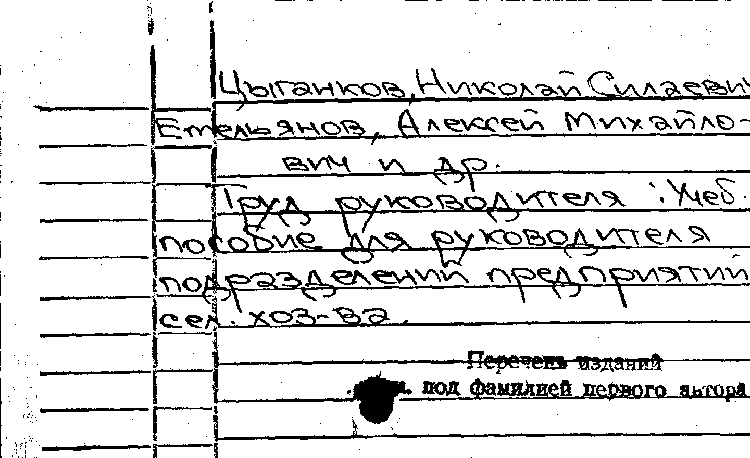 Цыганков, Николай Силаеви
Емельянов, Алексей Михайло-
вич и др.
Труд руководителя : Учеб.
пособие для руководителя
подразделений предприятий
сел. хоз-ва.
Перечень изданий
под фамилией первого автора